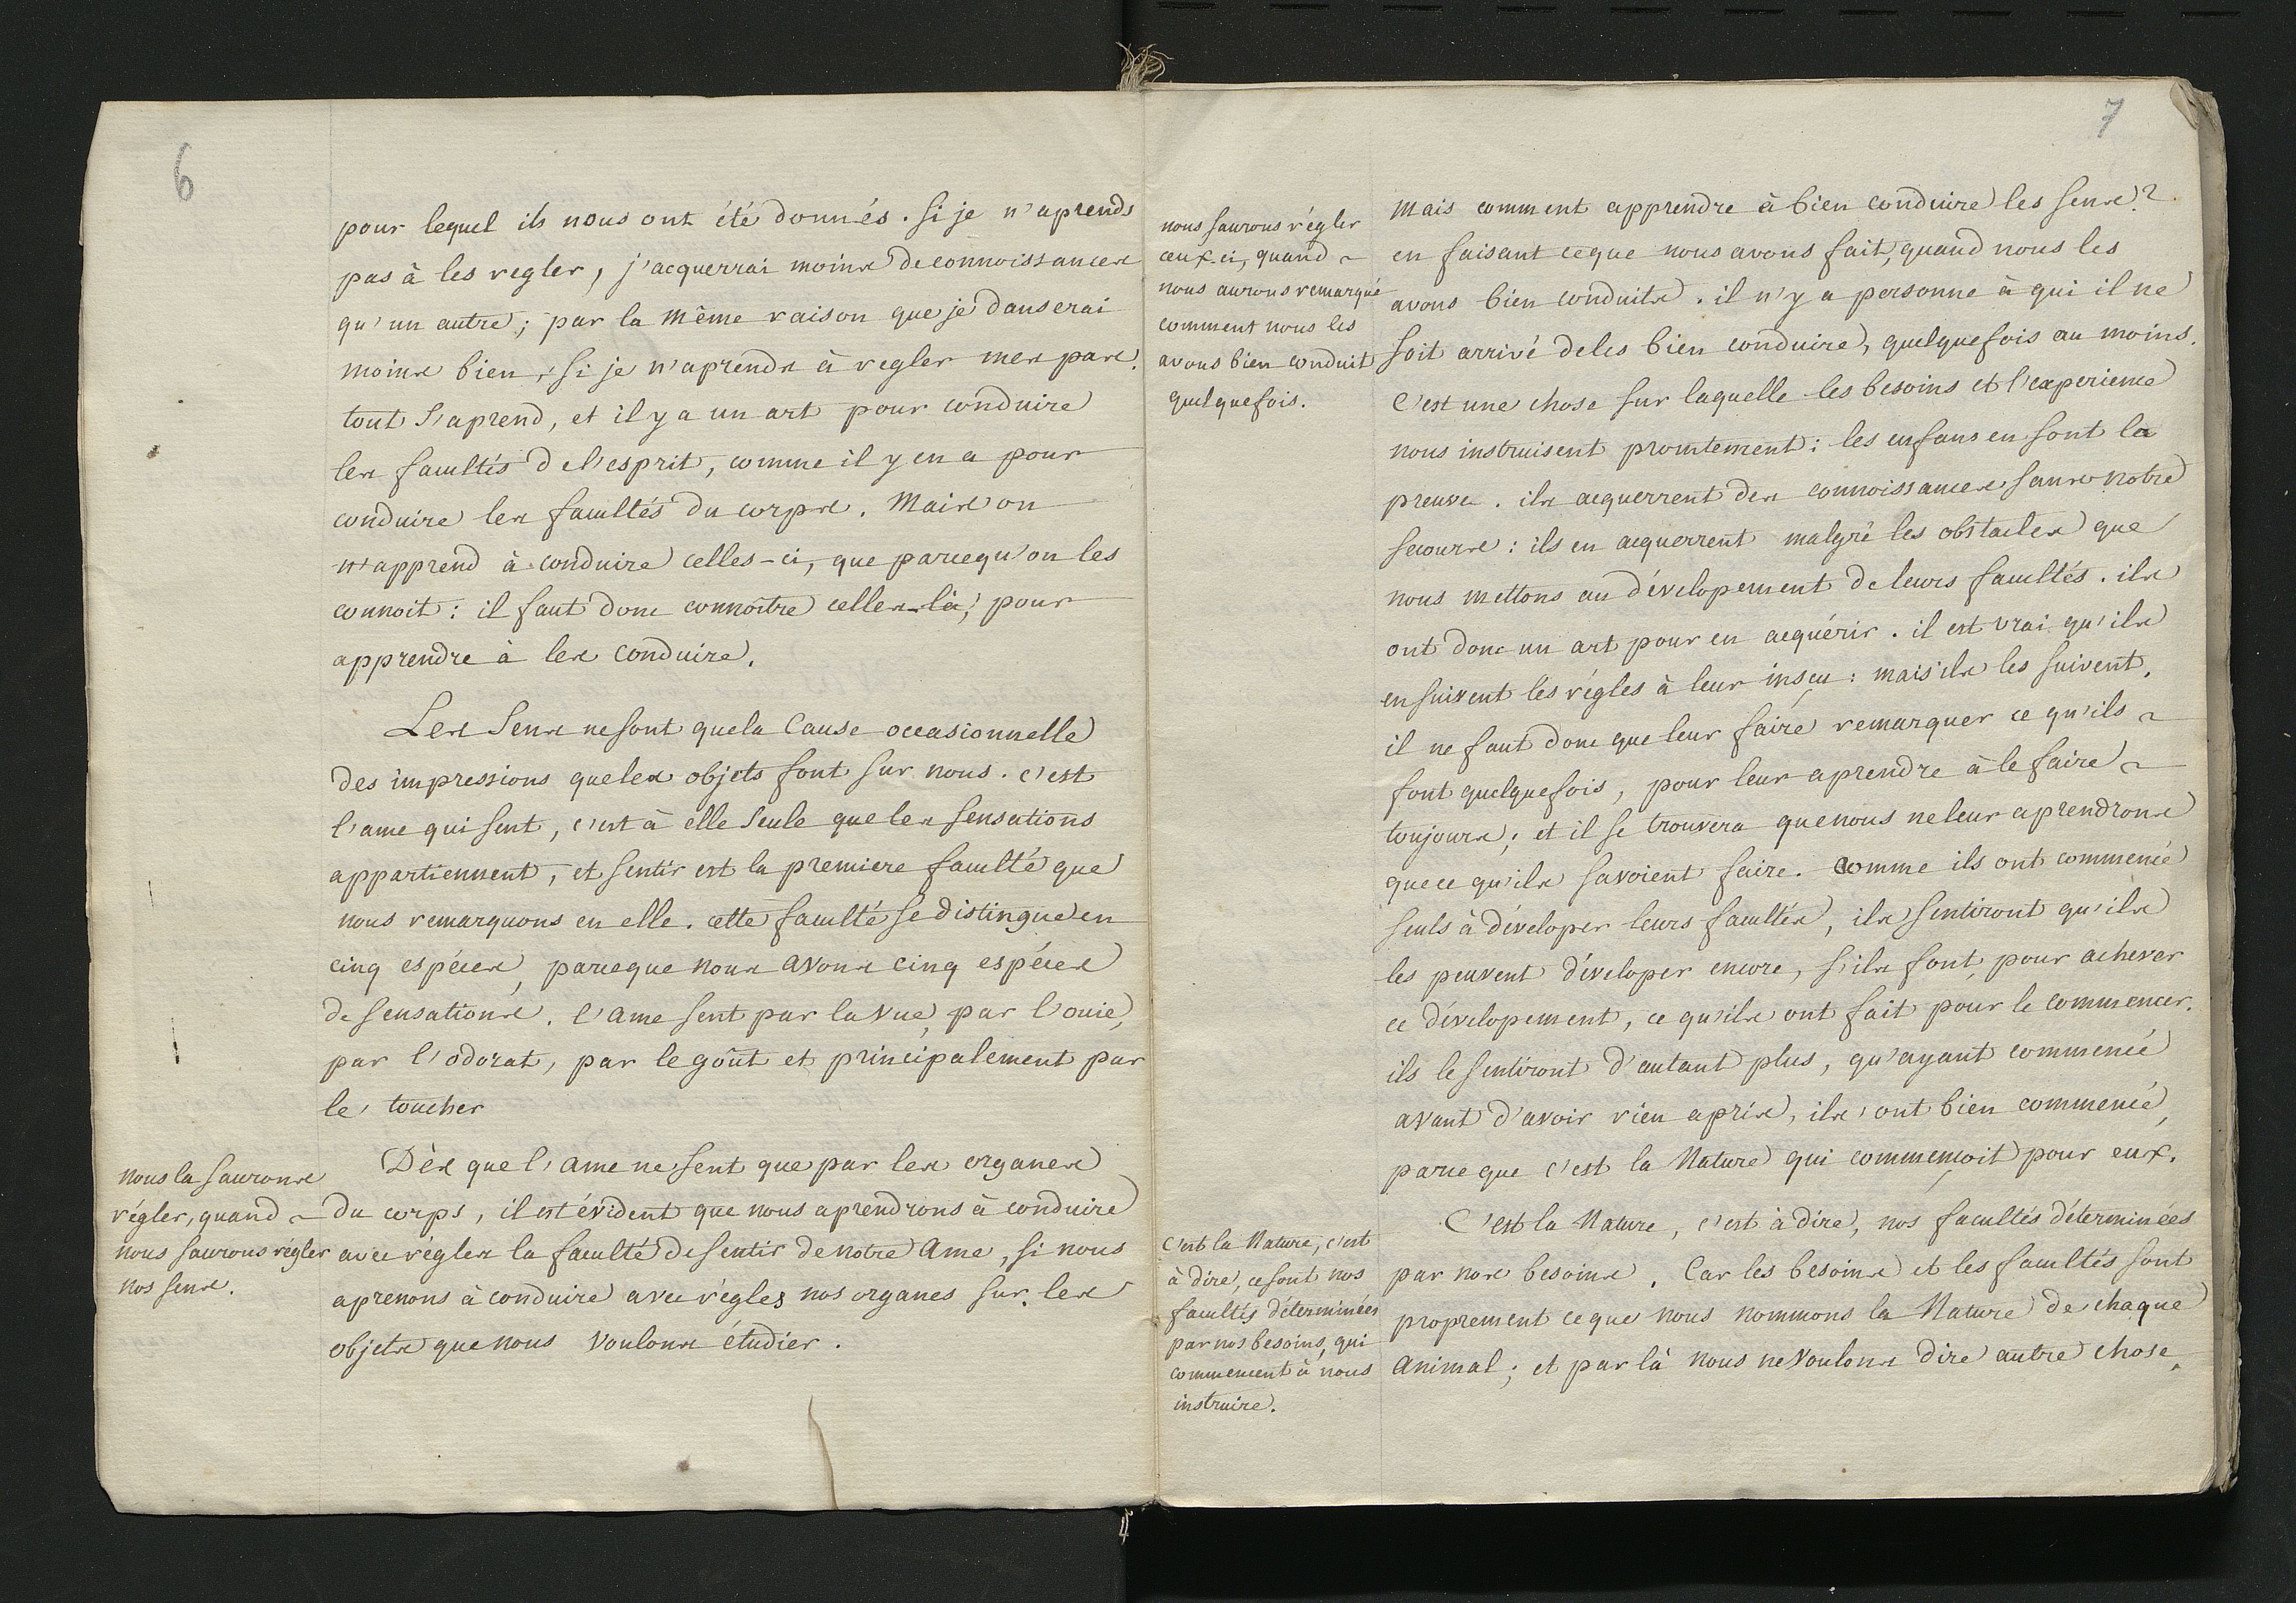 6
pour lequel ils nous ont été donnés. si je n'aprends
pas à les regler, j'acquerrai moins de connoissances
qu'un autre; par la même raison que je danserai
moins bien, si je n'aprends à regler mes pas.
tout s'aprend, et il y a un art pour conduire
les facultés de l'esprit, comme il y en a pour
conduire les facultés du corps. Mais on
n'apprend à conduire celles-ci, que parcequ'on les
connoit: il faut donc connoître celles-là, pour
apprendre à les conduire.
Les sens ne sont que la Cause occasionnelle
des impressions que les objets font sur nous. c'est
l'ame qui sent, c'est à elle seule que les sensations
appartiennent, et sentir est la premiere faculté que
nous remarquons en elle. cette faculté se distingue en
cinq espéces, parceque nous avons cinq espéces
de sensations. l'ame sent par la vue, par l'ouie,
par l'odorat, par le goût et principalement par
le toucher
nous la saurons
régler, quand
nous saurons régler
nos sens.
Dès que l'ame ne sent que par les organes
du corps, il est évident que nous aprendrons à conduire
avec régles la faculté de sentir de notre ame, si nous
aprenons à conduire avec régles nos organes sur les
objets que nous voulons étudier.
7
nous saurons régler
ceux-ci, quand
nous aurons remarqué
comment nous les
avons bien conduit
quelquefois.
Mais comment apprendre à bien conduire les sens?
en faisant ce que nous avons fait, quand nous les
avons bien conduits. il n'y a personne à qui il ne
soit arrivé de les bien conduire, quelquefois au moins.
C'est une chose sur laquelle les besoins et l'experience
nous instruisent promtement: les enfans en sont la
preuve. ils acquerrent des connoissances sans notre
secours: ils en acquerrent malgré les obstacles que
nous mettons au dévelopement de leurs facultés. ils
ont donc un art pour en acquérir. il est vrai qu'ils
en suivent les régles à leur insçu: mais ils les suivent.
il ne faut donc que leur faire remarquer ce qu'ils
font quelquefois, pour leur aprendre à le faire
toujours; et il se trouvera que nous ne leur aprendrons
que ce qu'ils savoient faire. Comme ils ont commencé
seuls à déveloper leurs facultés, ils sentiront qu'ils
les peuvent déveloper encore, s'ils font, pour achever
ce dévelopement, ce qu'ils ont fait pour le commencer.
ils le sentiront d'autant plus, qu'ayant commencé
avant d'avoir rien apris, ils ont bien commencé,
parce que c'est la Nature qui commençoit pour eux.
C'est la Nature, c'est
à dire, ce sont nos
facultés déterminées
par nos besoins, qui
commencent à nous
instruire.
C'est la Nature, c'est à dire, nos facultés déterminées
par nos besoins. Car les besoins et les facultés sont
proprement ce que nous nommons la Nature de chaque
animal; et par là nous ne voulons dire autre chose,